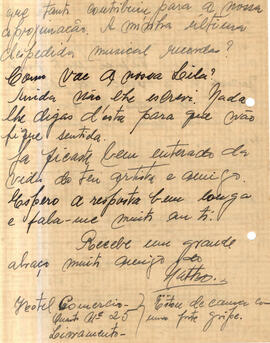 que tanto contribuiu para a nossa
aproximação. A minha ultima
despedida musical recordas?
Como vae a nossa Leila?
Ainda não lhe escrevi. Nada
lhe digas d'isto para que não
fique sentida.
Ja ficaste bem enterado da
vida do teu artista e amigo.
Espero a resposta bem longa
e fala-me muito en ti.
Recebe um grande
abraço muito amigo do
Hotel Comercio-
Quarto Nº 25
Livramento-
Estou de cama com
uma forte gripe.